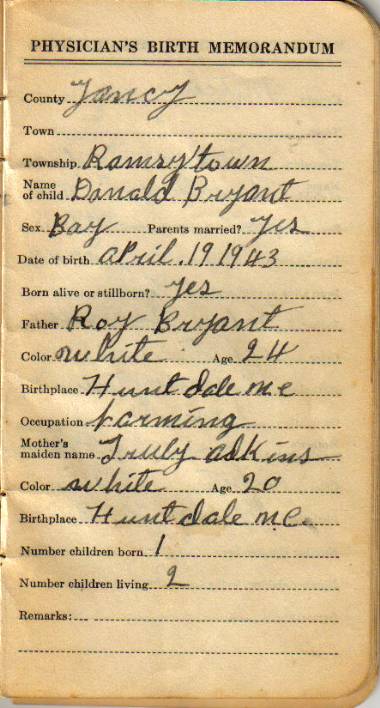 PHYSICIAN'S BIRTH MEMORANDUM
County Yancy
Town
Township Ramsytown
Name of child Donald Bryant
Sex Boy Parents married? yes
Date of birth April. 19 1943
Born alive or stillborn? yes
Father Roy Bryant
Color white Age 24
Birthplace Huntdale
Occupation Farming
Mother's maiden name Truly adkins
Color white Age 20
Birthplace Huntdale
Number children born 1
Number children living 2
Remarks: